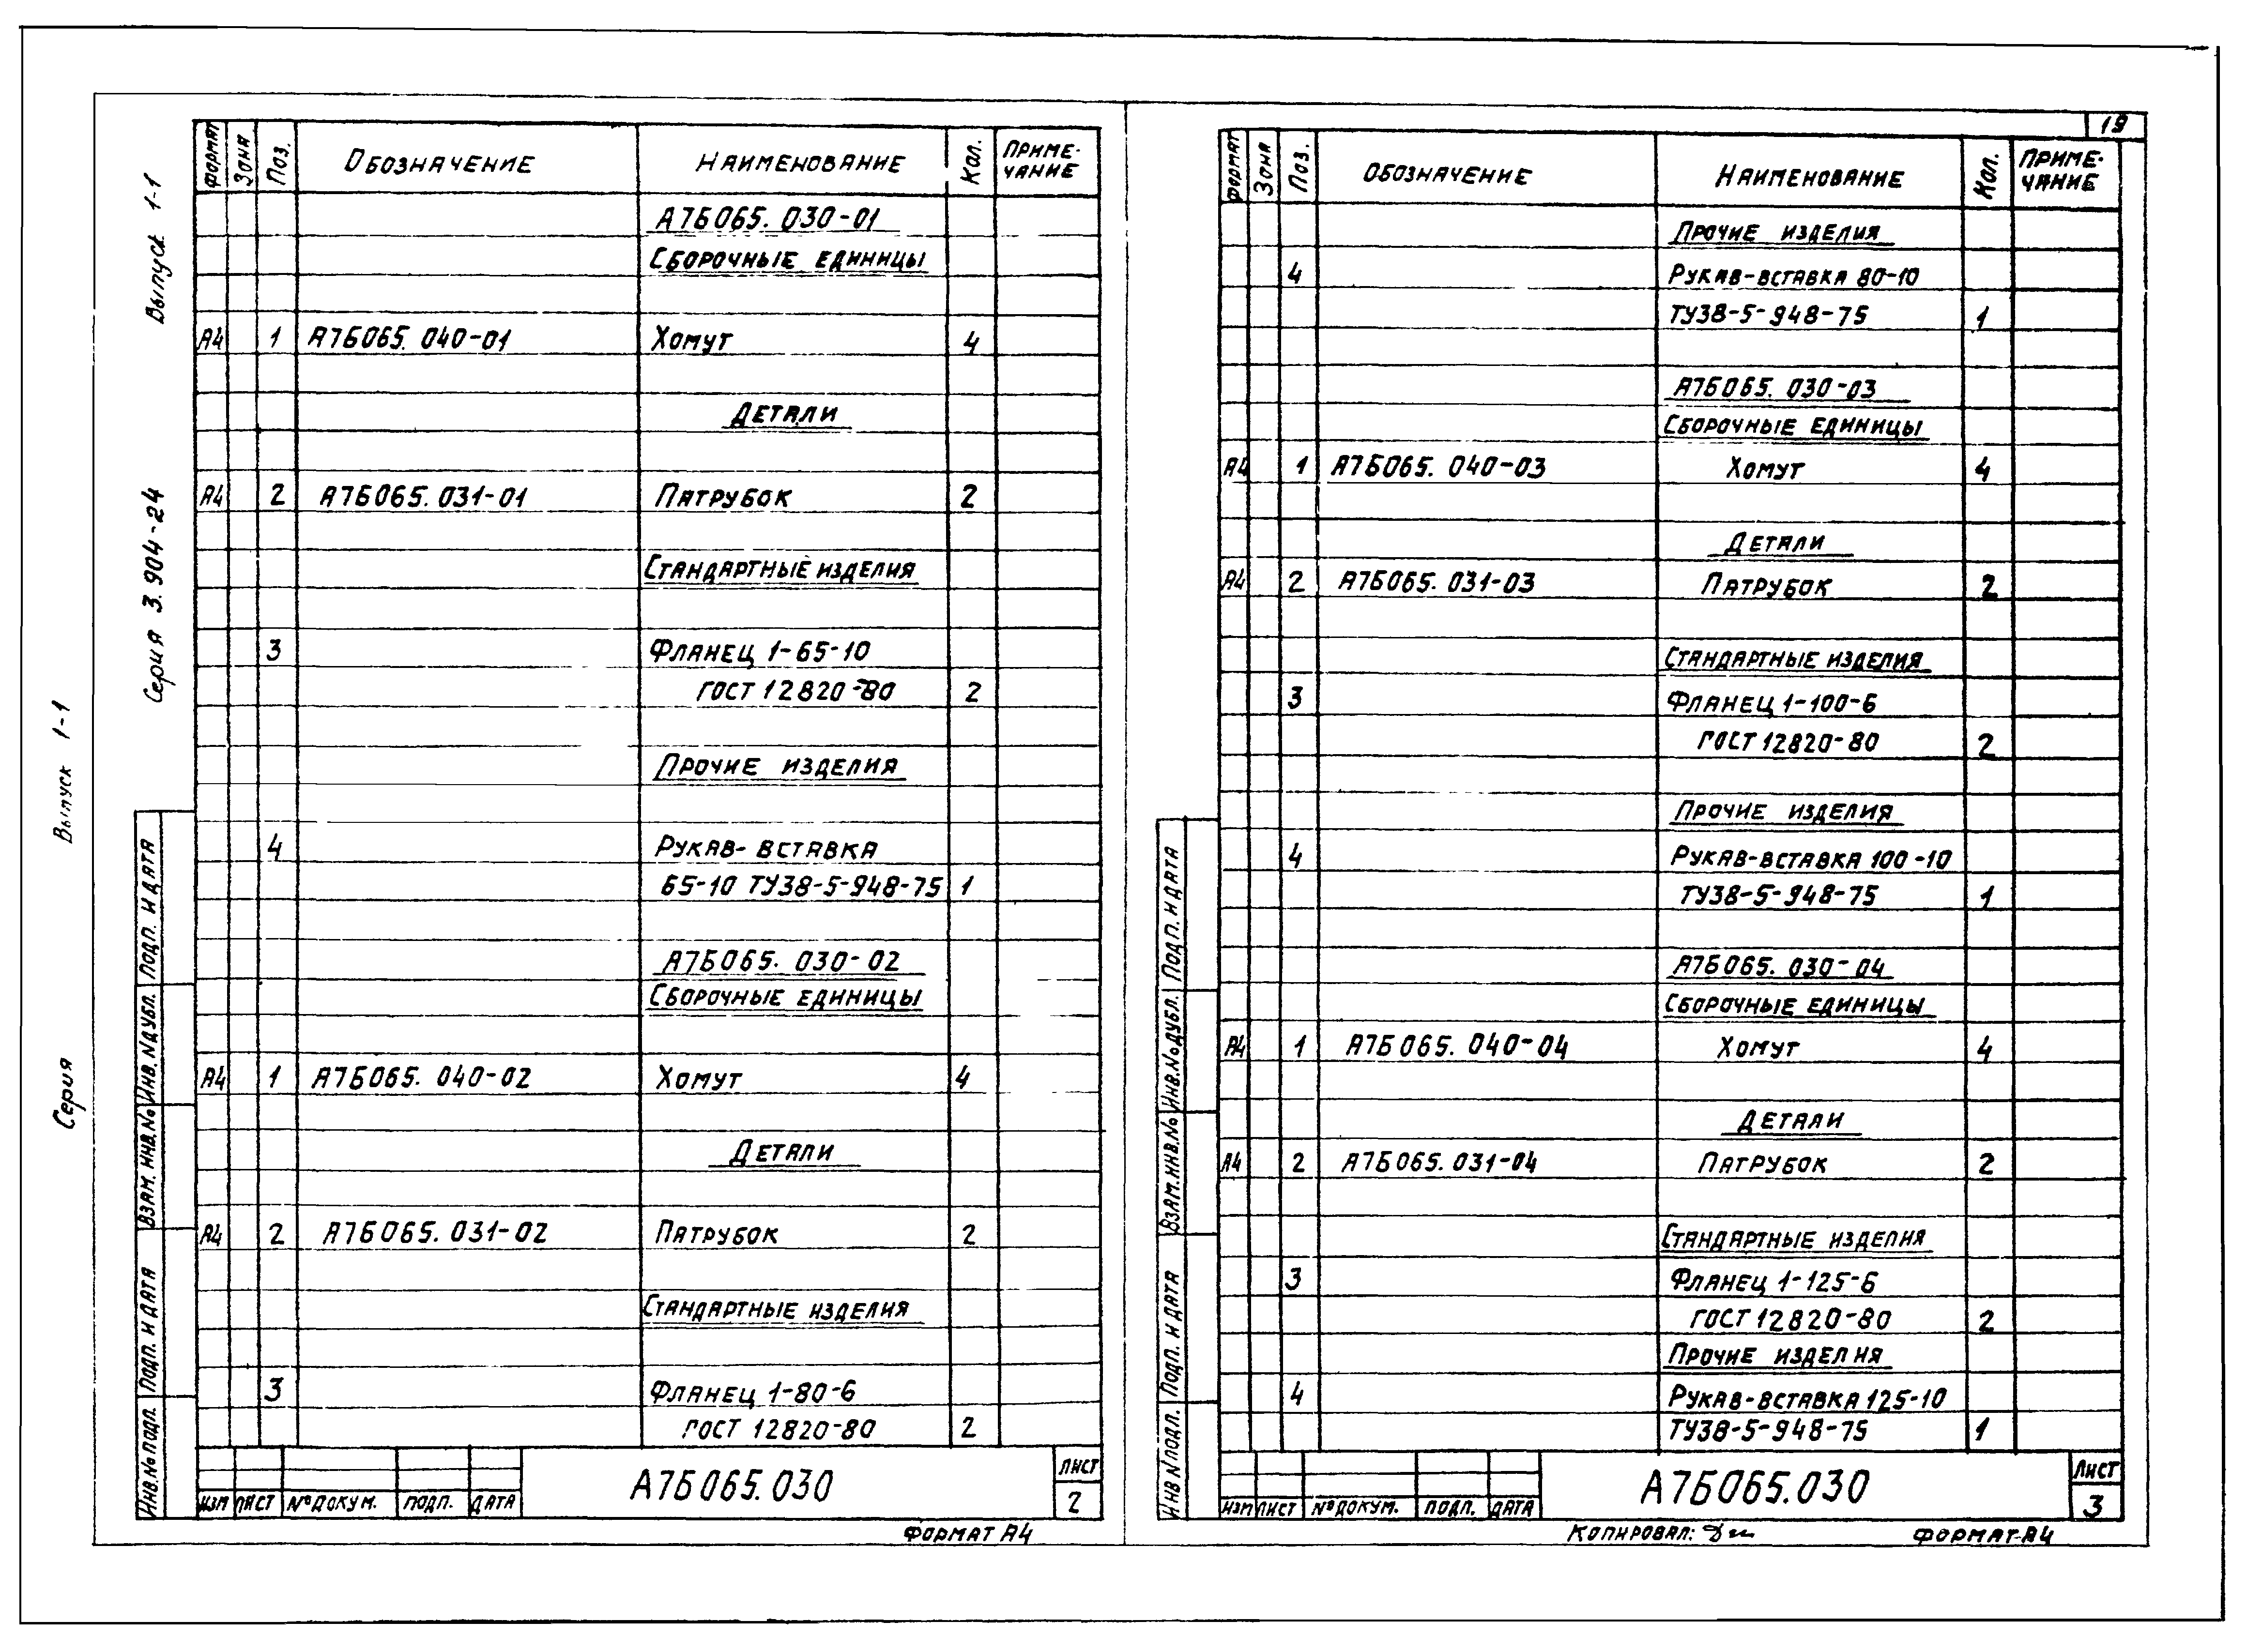 Серия Выпуск 1-1
Серия 3.904-24 Выпуск 1-1
Формат Зона Поз. Обозначение Наименование Кол. Приме-
чание
А7Б065.030-01
Сборочные единицы
А4 1 А7Б065.040-01 Хомут 4
Детали
А4 2 А7Б065.031-01 Патрубок 2
Стандартные изделия
3 Фланец 1-65-10
ГОСТ 12820-80 2
Прочие изделия
4 Рукав-вставка
65-10 ТУ38-5-948-75 1
А7Б065.030-02
Сборочные единицы
А4 1 А7Б065.040-02 Хомут 4
Детали
А4 2 А7Б065.031-02 Патрубок 2
Стандартные изделия
3 Фланец 1-80-6
ГОСТ 12820-80 2
Инв.№ подл. Подп. и дата Взам. инв.№ Инв. №дубл. Подп. и дата
Изм Лист №докум. Подп. Дата
А7Б065.030
Лист
2
Формат А4
19
Формат Зона Поз. Обозначение Наименование Кол. Приме-
чание
Прочие изделия
4 Рукав-вставка 80-10
ТУ38-5-948-75 1
А7Б065.030-03
Сборочные единицы
А4 1 А7Б065.040-03 Хомут 4
Детали
А4 2 А7Б065.031-03 Патрубок 2
Стандартные изделия
3 Фланец 1-100-6
ГОСТ 12820-80 2
Прочие изделия
4 Рукав-вставка 100-10
ТУ38-5-948-75 1
А7Б065.030-04
Сборочные единицы
А4 1 А7Б065.040-04 Хомут 4
Детали
А4 2 А7Б065.031-04 Патрубок 2
Стандартные изделия
3 Фланец 1-125-6
ГОСТ 12820-80 2
Прочие изделия
4 Рукав-вставка 125-10
ТУ38-5-948-75 1
Инв №подл. Подп. и дата Взам.инв.№ Инв.№дубл. Подп. и дата
Изм Лист №докум. Подп. Дата
А7Б065.030
Лист
3
Копировал: Формат А4